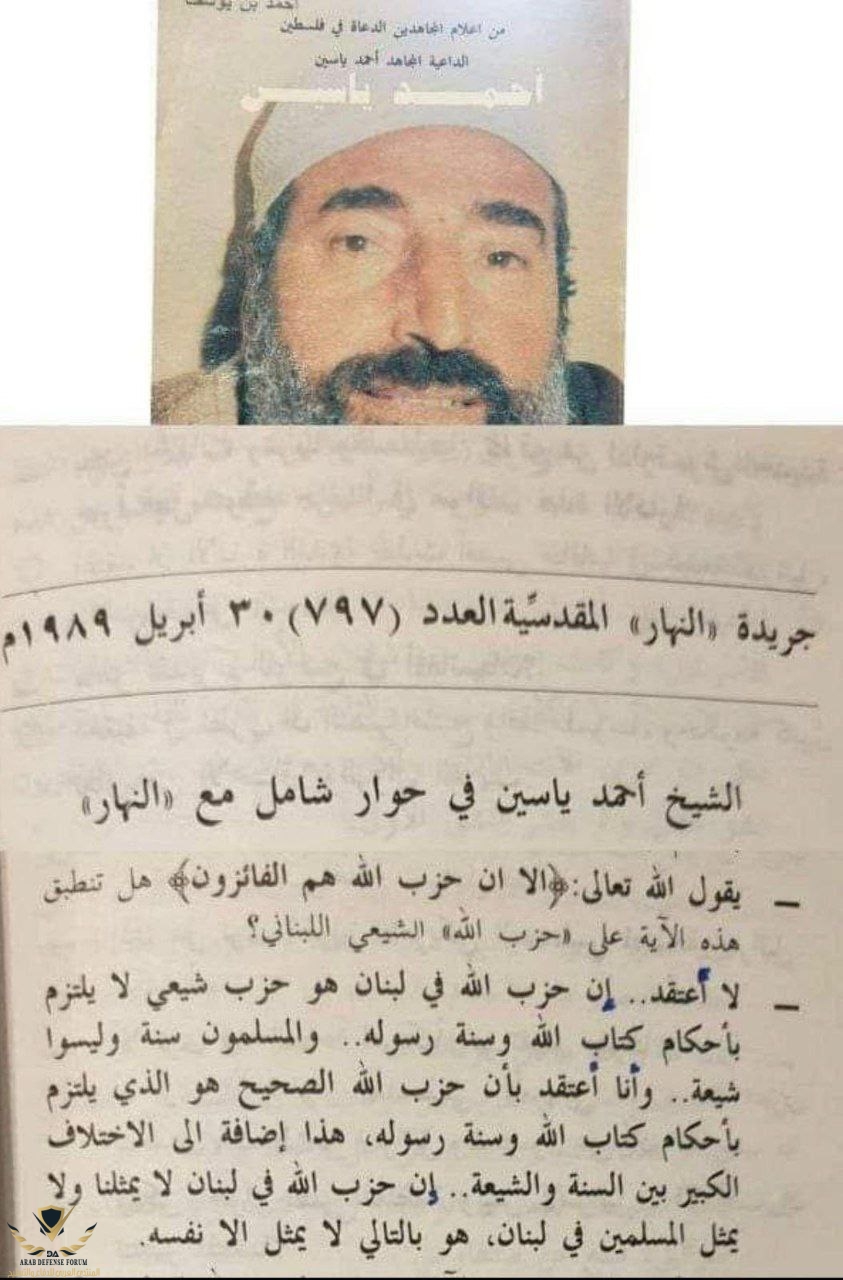 احمد بن يوسف
من اعلام المجاهدين الدعاة في فلسطين
الداعية المجاهد أحمد ياسين
أحمد ياسين
جريدة «النهار» المقدسيّة العدد (٧٩٧) ٣٠ أبريل ١٩٨٩م
الشيخ أحمد ياسين في حوار شامل مع «النهار»
— يقول الله تعالى: ﴿الا ان حزب الله هم الفائزون﴾ هل تنطبق
هذه الآية على «حزب الله» الشيعي اللبناني؟
— لا أعتقد.. إن حزب الله في لبنان هو حزب شيعي لا يلتزم
بأحكام كتاب الله وسنة رسوله.. والمسلمون سنة وليسوا
شيعة.. وأنا أعتقد بأن حزب الله الصحيح هو الذي يلتزم
بأحكام كتاب الله وسنة رسوله، هذا إضافة الى الاختلاف
الكبير بين السنة والشيعة.. إن حزب الله في لبنان لا يمثلنا ولا
يمثل المسلمين في لبنان، هو بالتالي لا يمثل الا نفسه.
DA
ARAB DEFENSE FORUM